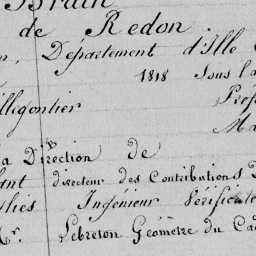 de Redon
Département d'Ille
1818 Sous l'a
illigontier
Prof
Ma
la Direction de
directeur des Contributions D
Ingénieur Vérificate
Mr. Lebreton Géomètre du Cad